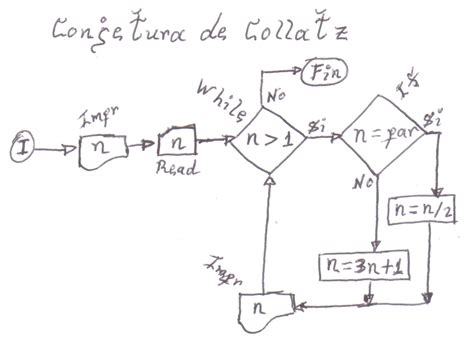 Conjetura de Collatz
Fin
While
No
If
Impr
I
n
n
Read
n > 1
Si
n = par
Si
No
n = n/2
n = 3n+1
n